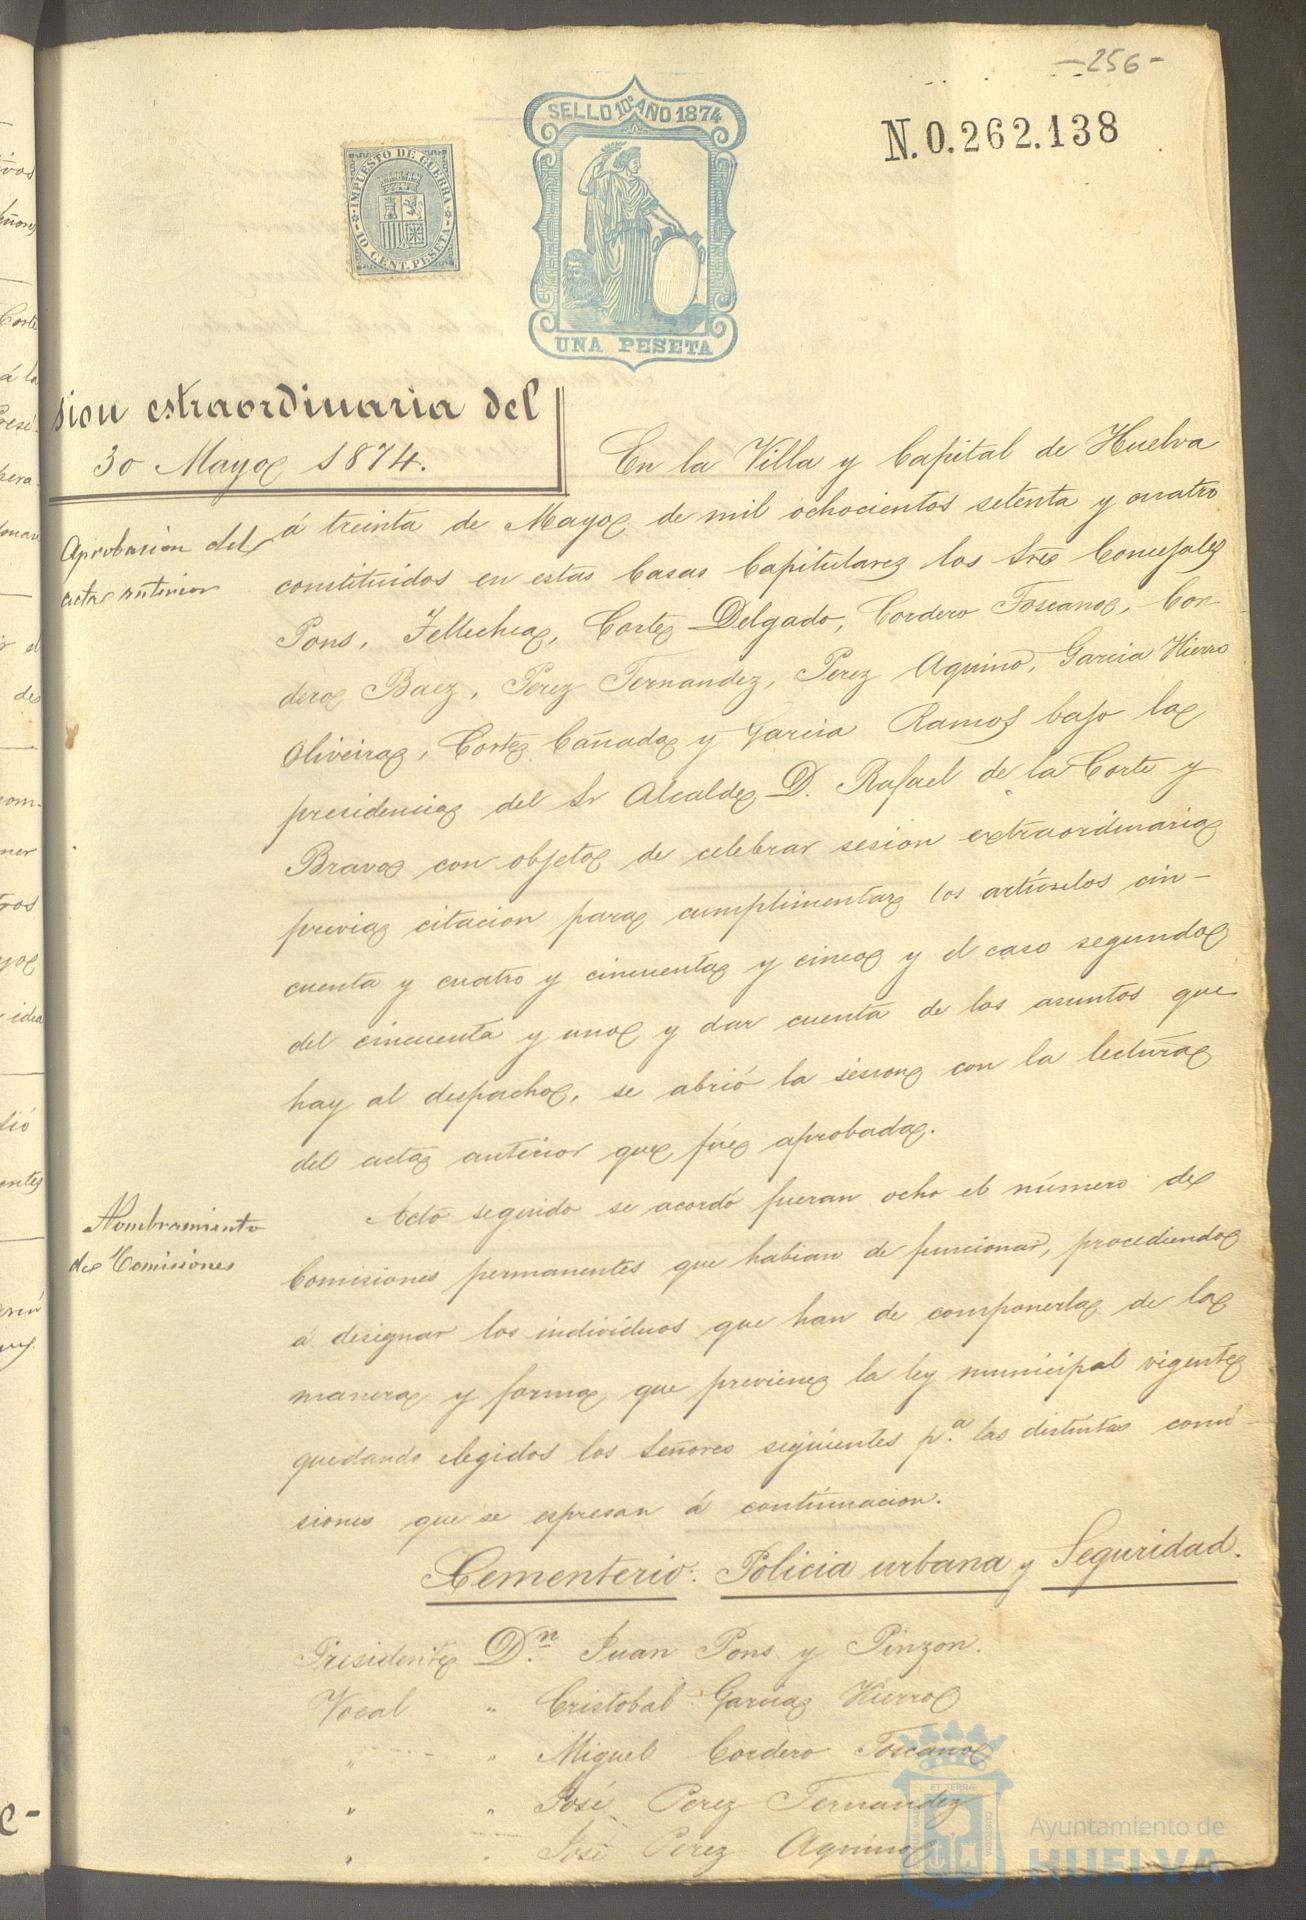 -256-
SELLO 10º AÑO 1874
N.0.262.138
IMPUESTO DE GUERRA
10 CENT. PESETA
UNA PESETA
sion estraordinaria del
30 Mayo 1874.
En la Villa y Capital de Huelva
Aprobacion del
acta anterior
á treinta de Mayo de mil ochocientos setenta y cuatro
constituidos en estas Casas Capitulares los Sres Concejales
Pons, Tellechea, Corte Delgado, Cordero Toscano, Cor-
dero Baez, Perez Fernandez, Perez Aquino, Garcia Hierro
Oliveira, Cortez Cañada y Garcia Ramos bajo la
presidencia del Sr Alcalde D. Rafael de la Corte y
Bravo con objeto de celebrar sesion extraordinaria
previa citacion para cumplimentar los artículos cin-
cuenta y cuatro y cincuenta y cinco y el caso segundo
del cincuenta y uno y dar cuenta de los asuntos que
hay al despacho, se abrió la sesion con la lectura
del acta anterior que fué aprobada.
Nombramiento
de Comisiones
Acto seguido se acordó fueran ocho el número de
Comisiones permanentes que habian de funcionar, procediendo
a designar los individuos que han de componerla de la
manera y forma que previene la ley municipal vigente
quedando elegidos los Señores siguientes p.ª las distintas comi-
siones que se espresan á continuacion.
Cementerio. Policia urbana y Seguridad.
Presidente D.n Juan Pons y Pinzon.
Vocal " Cristobal Garcia Hierro
" " Miguel Cordero Toscano
" " José Perez Fernandez
" " José Perez Aquino
Ayuntamiento de
HUELVA